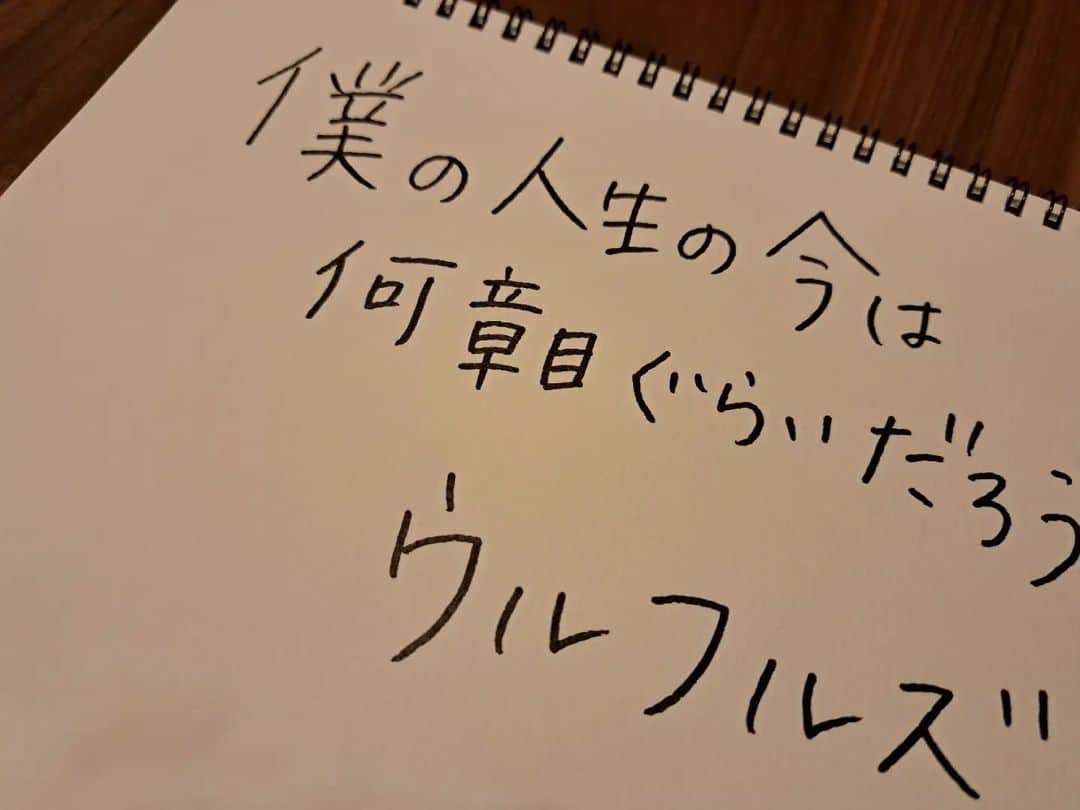 僕の人生の今は
何章目ぐらいだろう
ウルフルズ